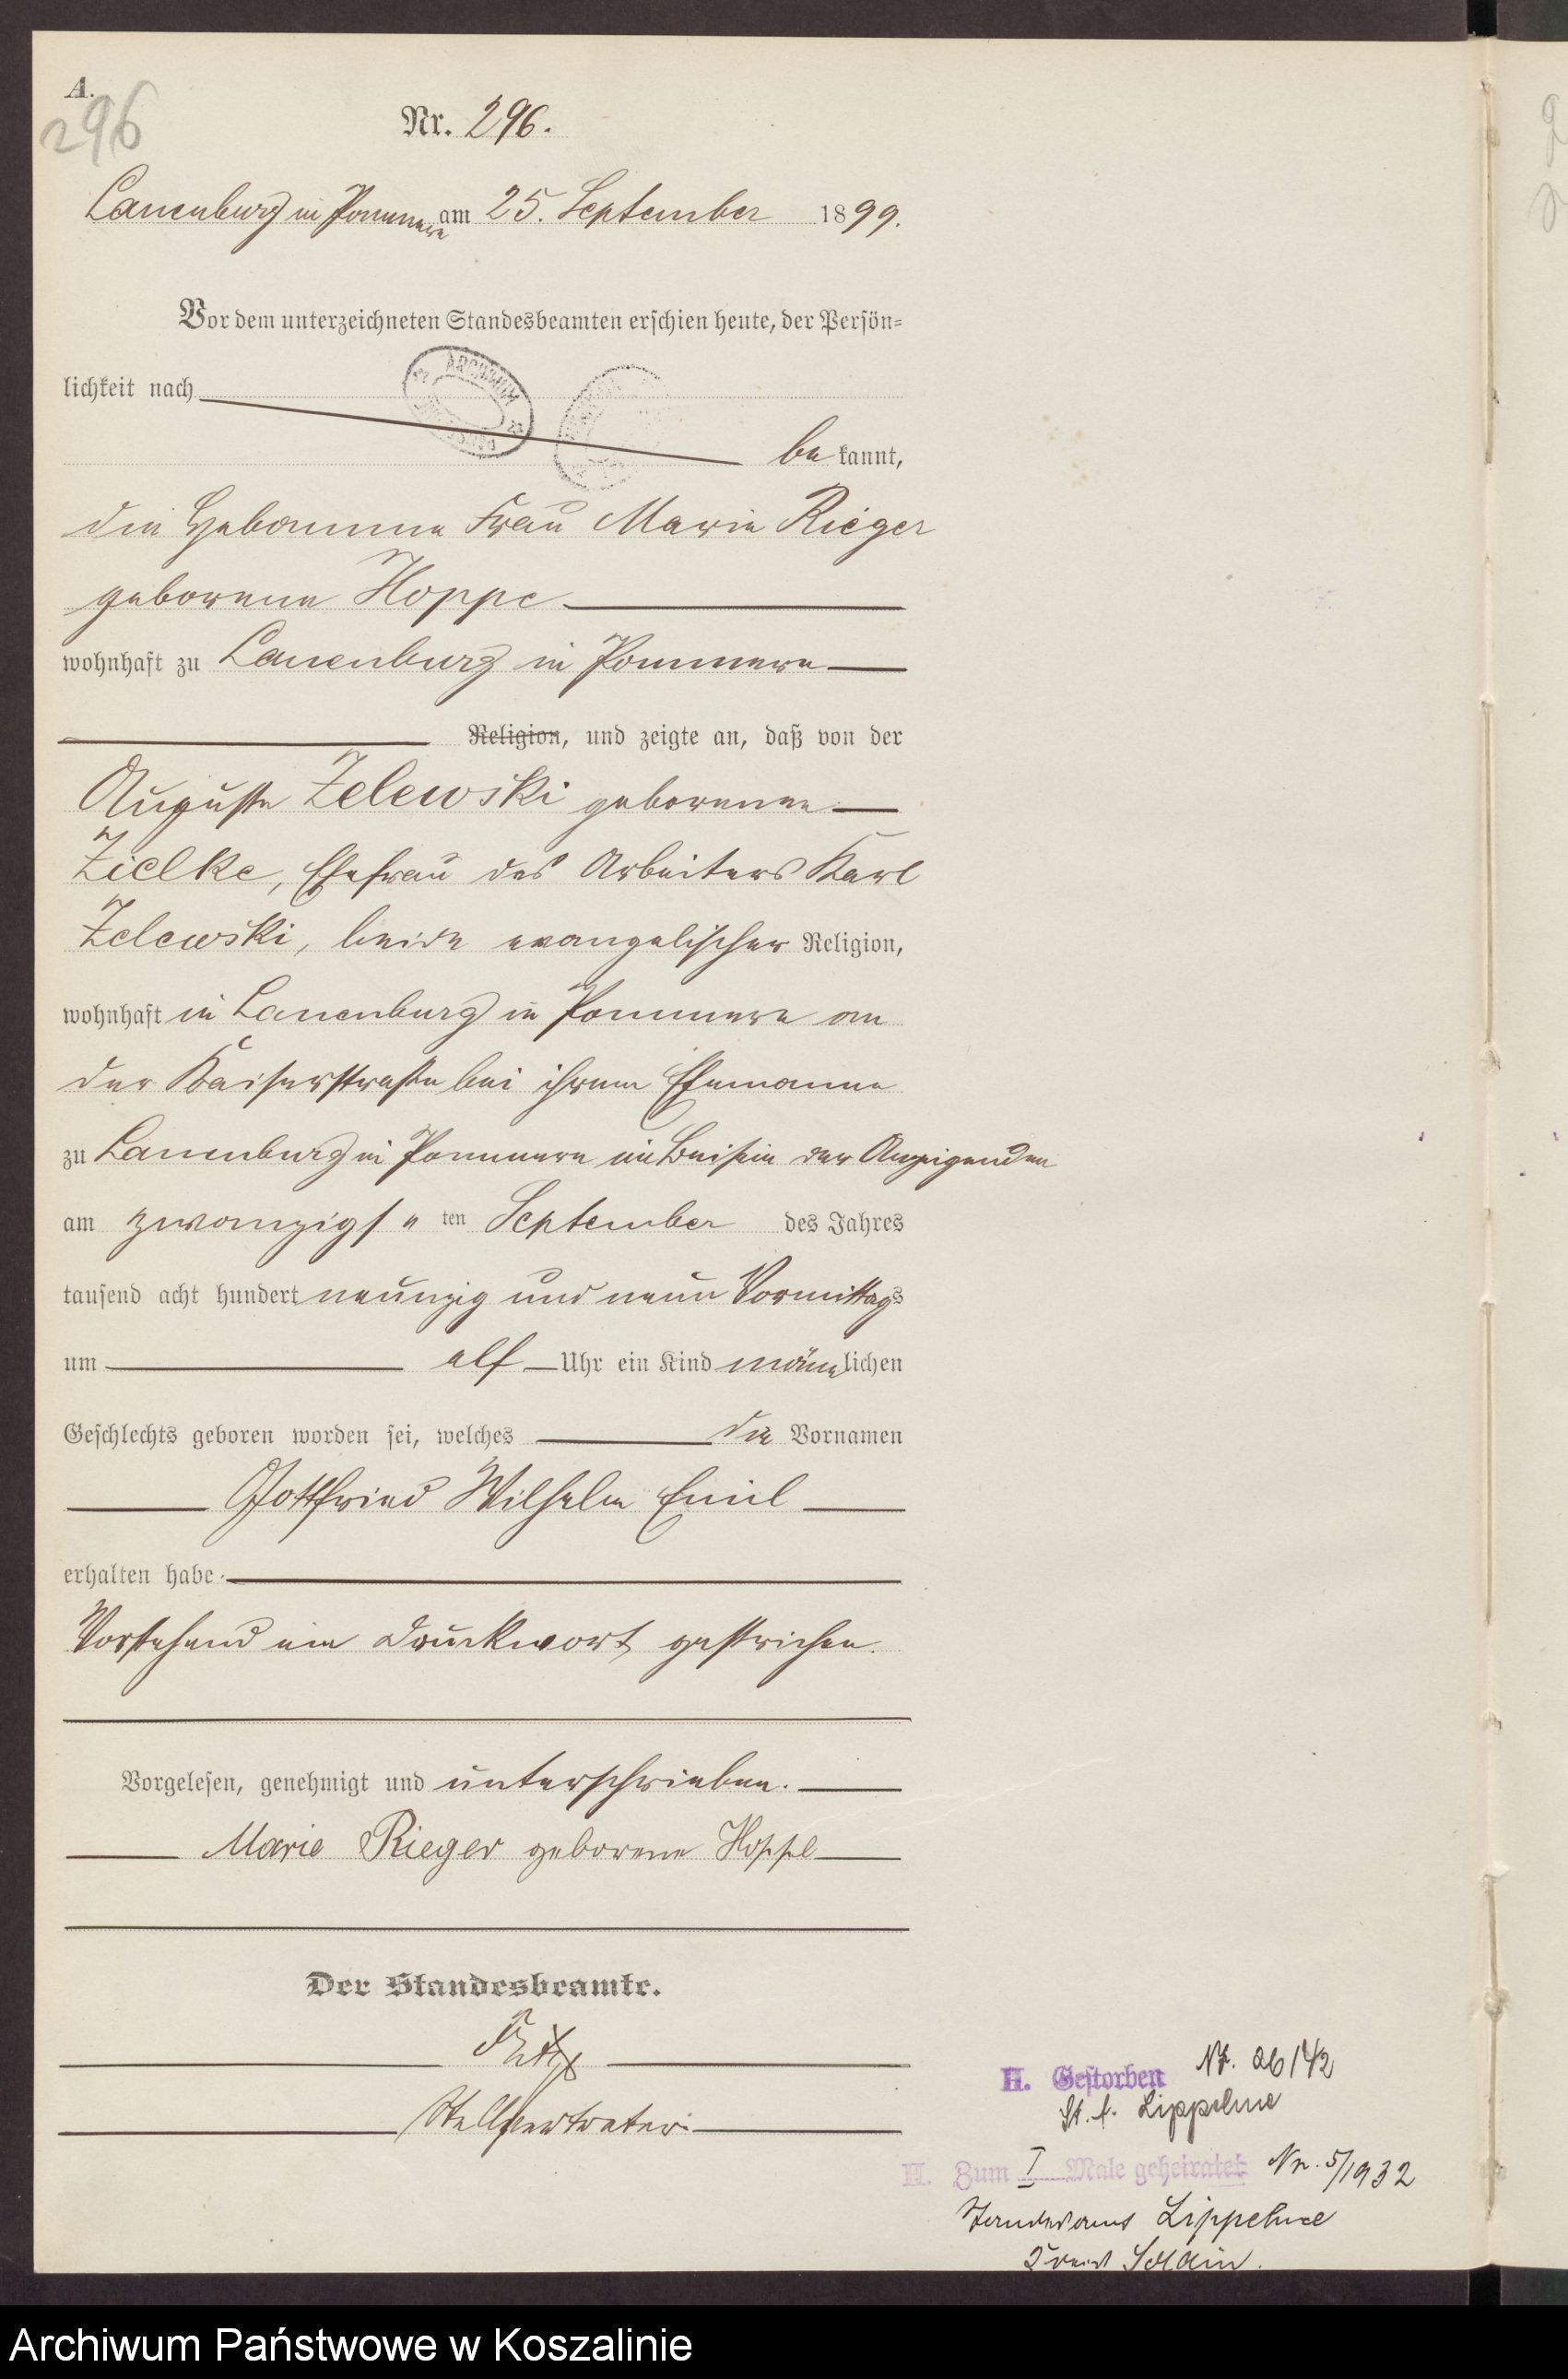 A.
296
Nr. 296.
Lauenburg in Pommern am 25. September 1899.
Vor dem unterzeichneten Standesbeamten erschien heute, der Persön-
lichkeit nach
ARCHIWUM
be kannt,
die Hebamme Frau Marie Rieger
geborene Hoppe
wohnhaft zu Lauenburg in Pommern
Religion, und zeigte an, daß von der
Auguste Zelewski geborenen
Zielke, Ehefrau des Arbeiters Karl
Zelewski, beide evangelischer Religion,
wohnhaft in Lauenburg in Pommern an
der Kaiserstraße bei ihrem Ehemanne
zu Lauenburg in Pommern im Beisein der Anzeigenden
am zwanzigs " ten September des Jahres
tausend acht hundert neunzig und neun Vormittags
um elf Uhr ein Kind männlichen
Geschlechts geboren worden sei, welches die Vornamen
Gottfried Wilhelm Emil
erhalten habe.
Vorstehend ein Druckwort gestrichen.
Vorgelesen, genehmigt und unterschrieben.
Marie Rieger geborene Hoppe
Der Standesbeamte.
Stellvertreter.
H. Gestorben Nr. 26/42
St. A. Lippehne
H. Zum I Male geheiratet Nr. 5/1932
Standesamt Lippehne
Kreis Soldin.
Archiwum Państwowe w Koszalinie